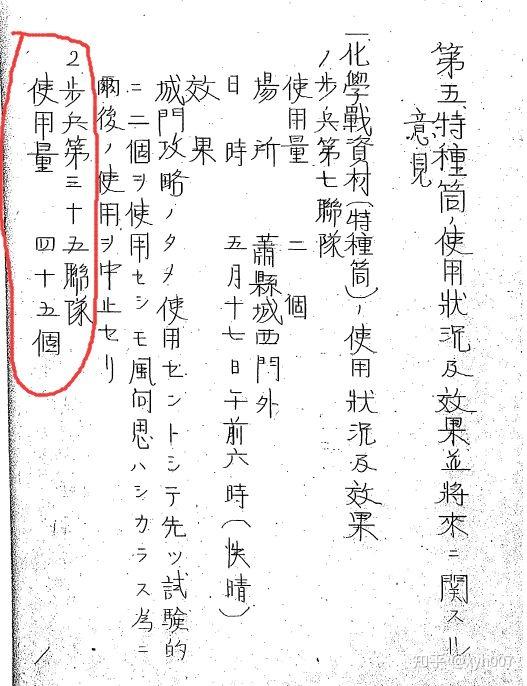 第五、特種筒ノ使用狀況及效果並將來ニ関スル
意見
一化學戰資材(特種筒)ノ使用狀況及效果
ノ步兵第七聯隊
使用量 二個
場所 蕭縣城西門外
日時 五月十七日午前六時(快晴)
效果
城門攻略ノタメ使用セントシテ先ッ試驗的
ニ二個ヲ使用セシモ風向思ハシカラス為ニ
爾後ノ使用ヲ中止セリ
2步兵第三十五聯隊
使用量 四十五個
知乎 @xyh007